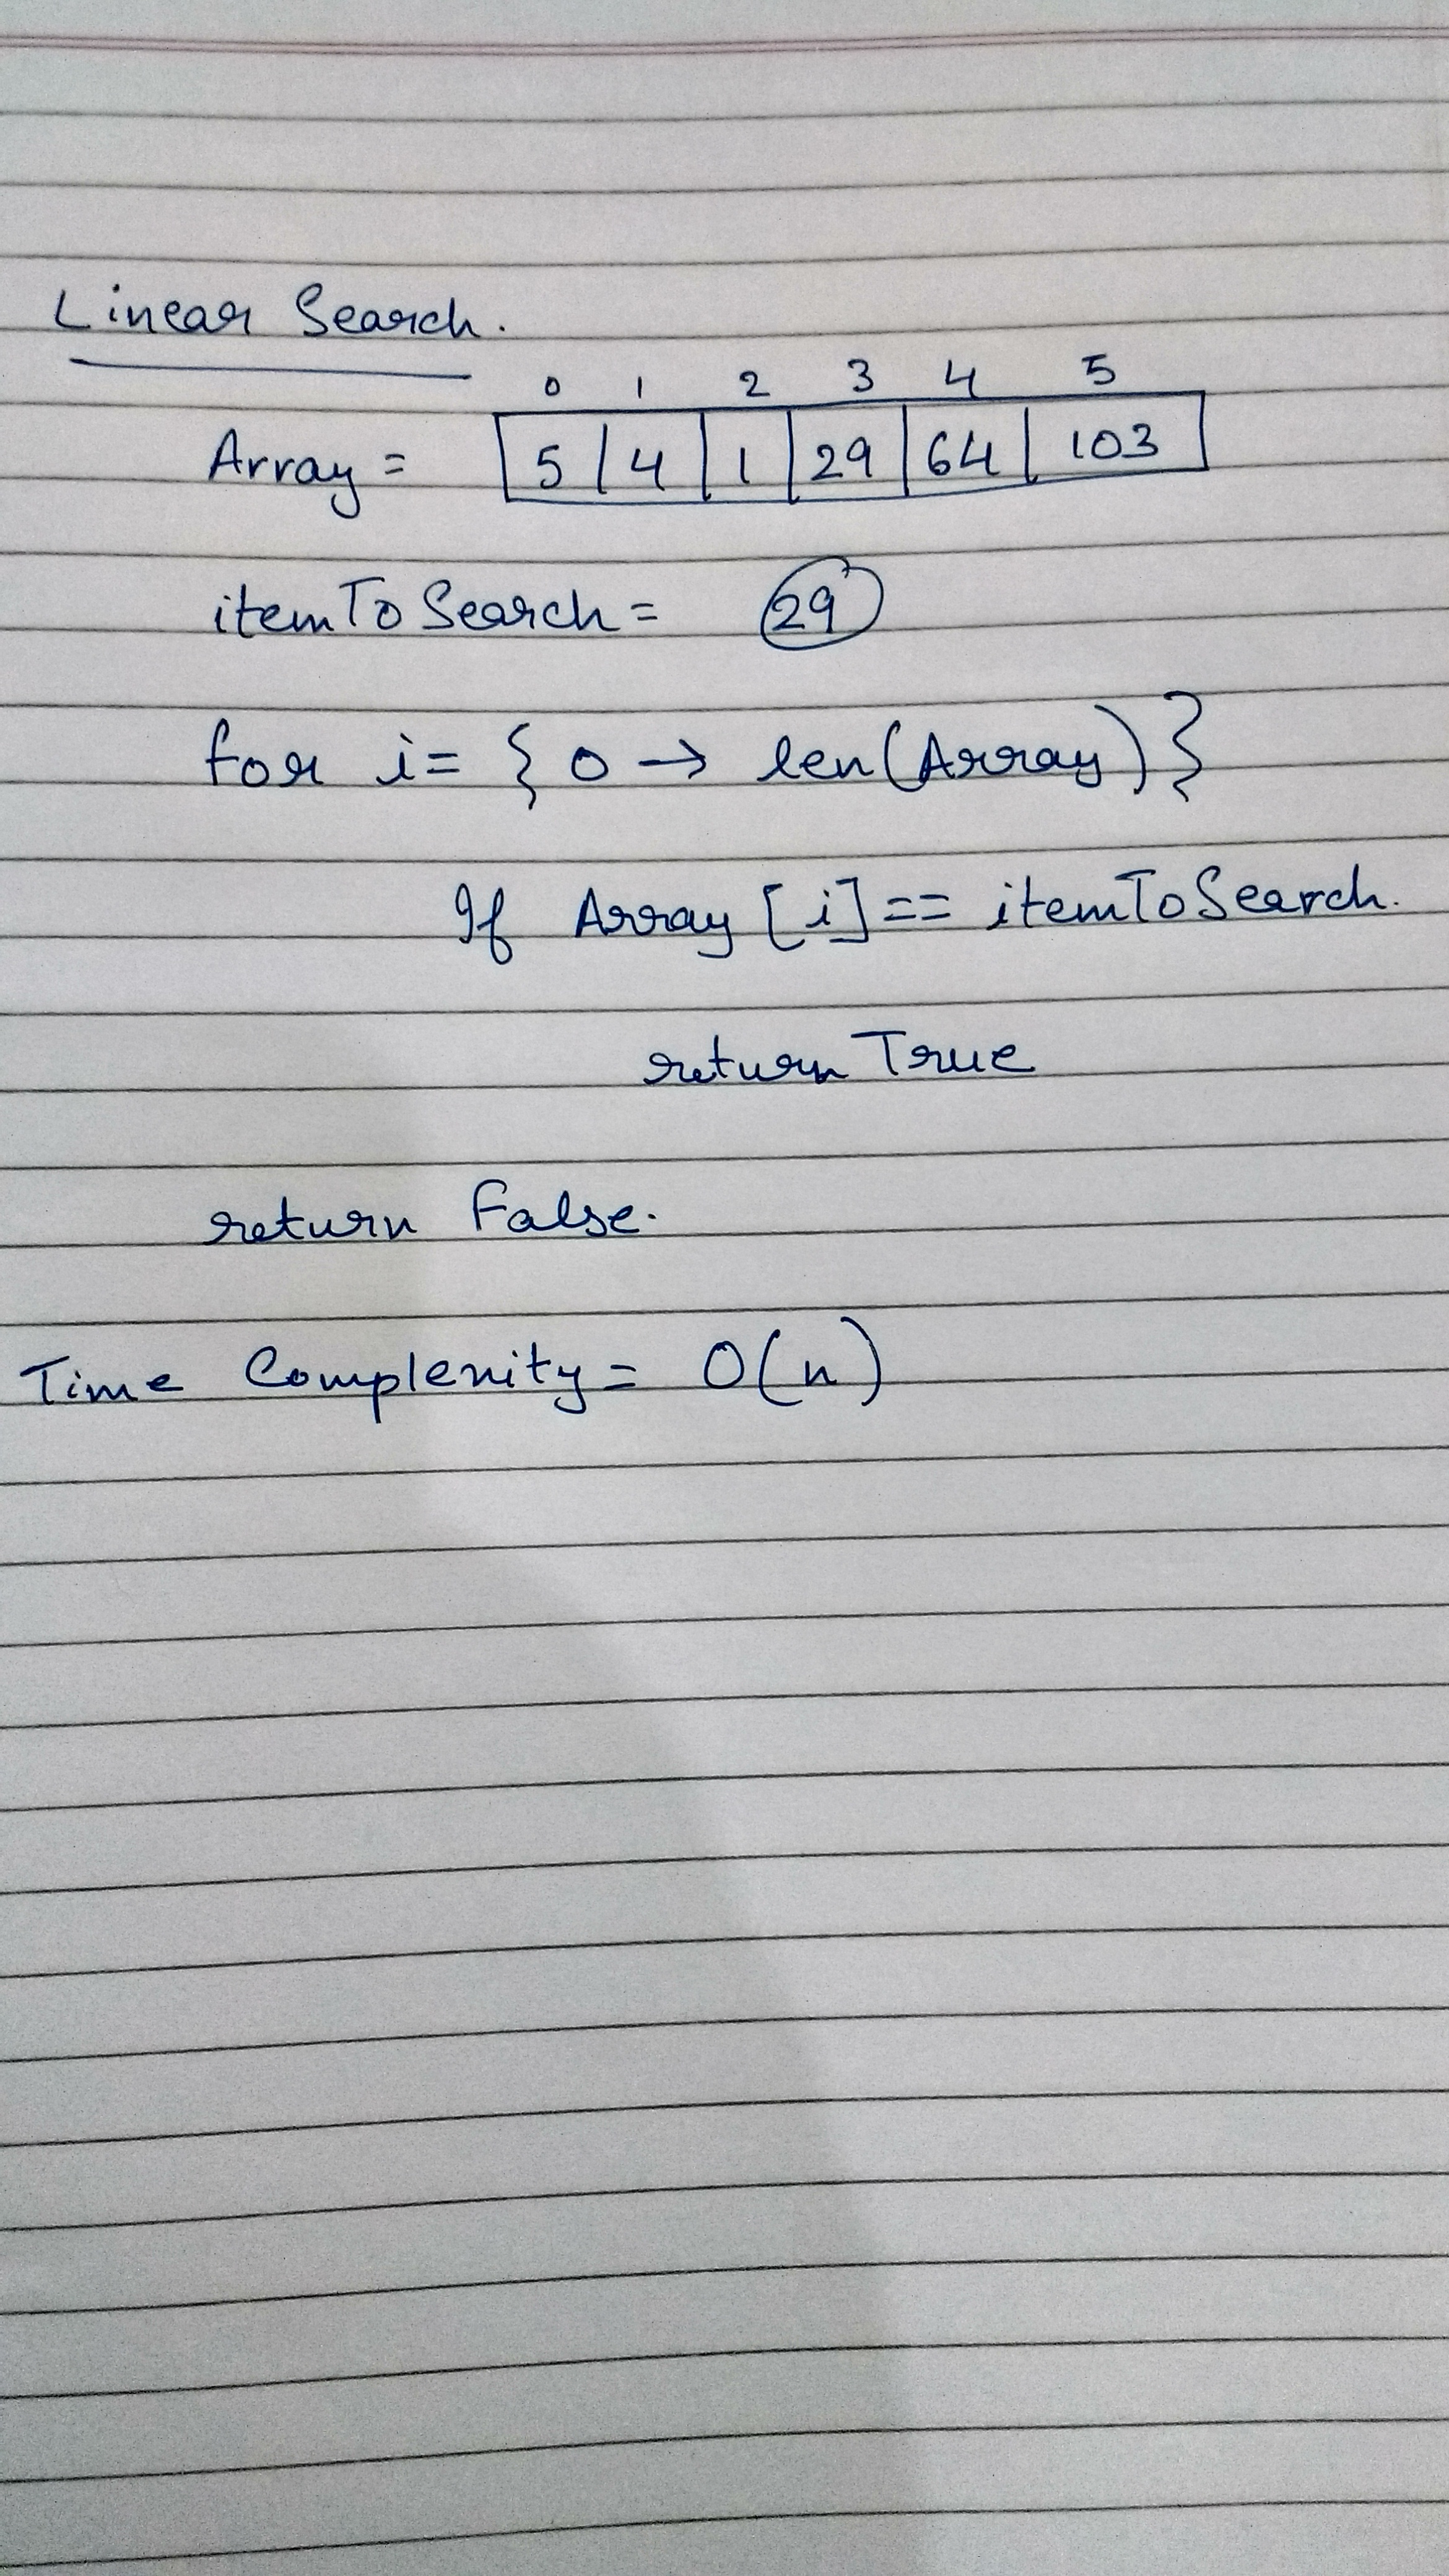 Linear Search.
0 1 2 3 4 5
Array = 5 4 1 29 64 103
itemToSearch = 29
for i = { 0 → len(Array) }
If Array [i] == itemToSearch.
return True
return False.
Time Complexity = O(n)